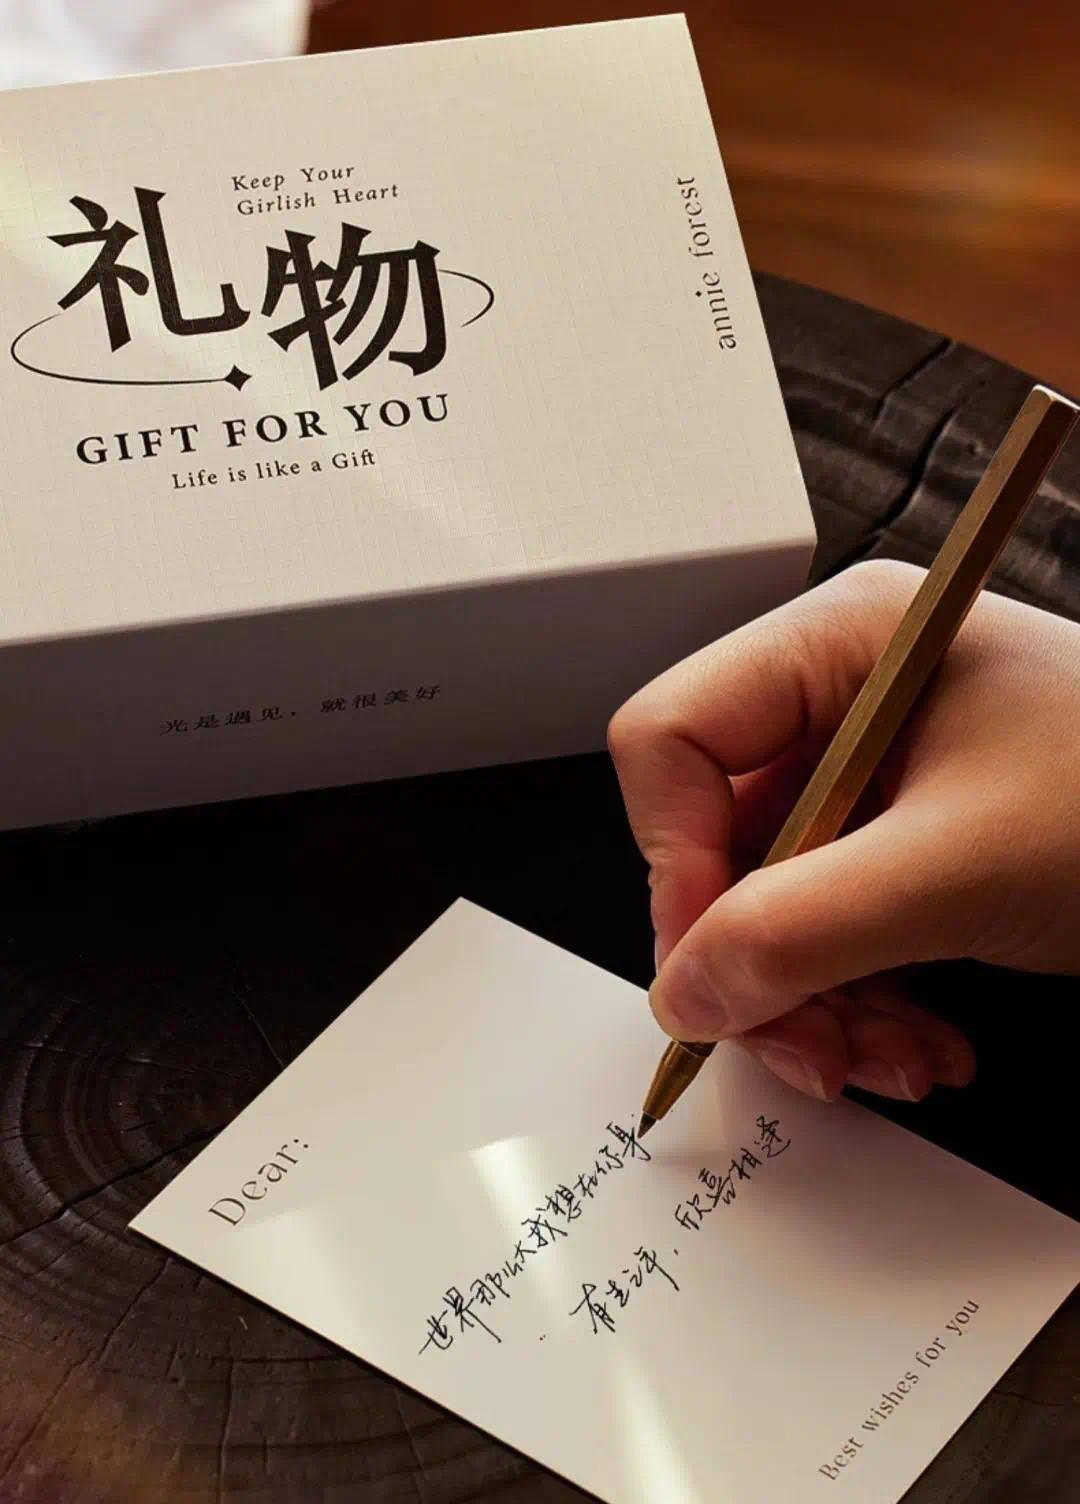 Keep Your
Girlish Heart
礼物
GIFT FOR YOU
Life is like a Gift
annie forest
光是遇见，就很美好
Dear:
世界那么大我想在你身
有生之年，欣喜相逢
Best wishes for you